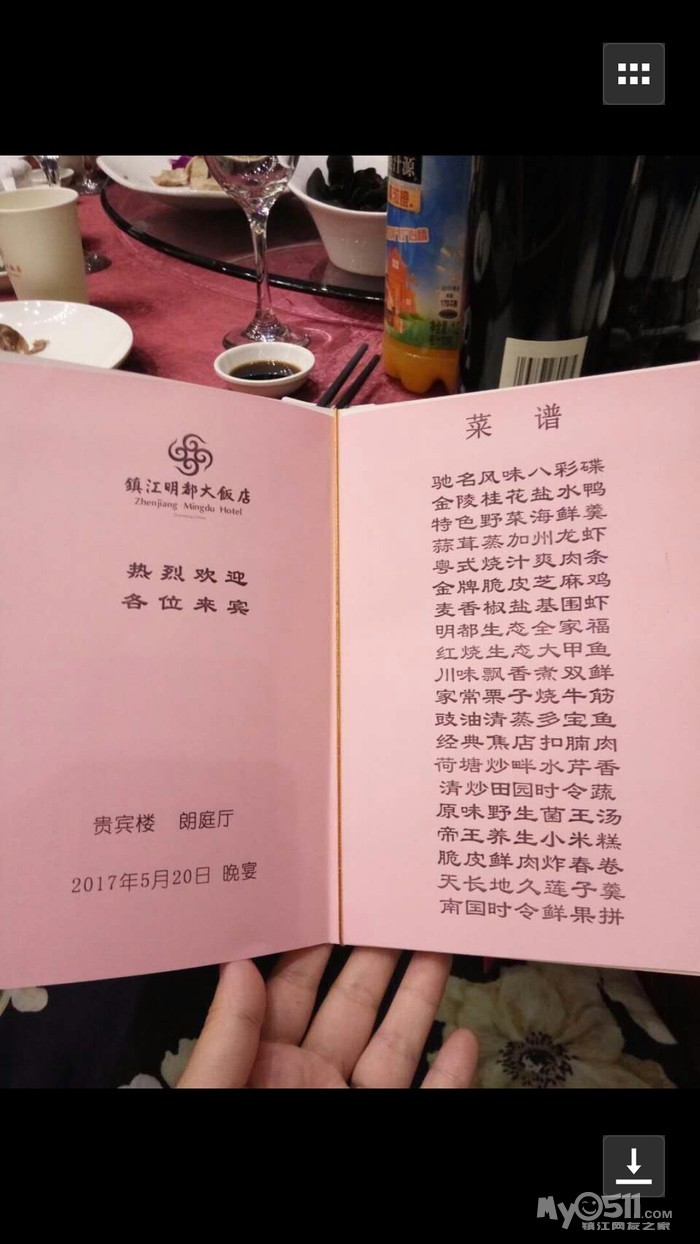 鎮江明都大飯店
Zhenjiang Mingdu Hotel
热烈欢迎
各位来宾
贵宾楼 朗庭厅
2017年5月20日 晚宴
菜 谱
驰名风味八彩碟
金陵桂花盐水鸭
特色野菜海鲜羹
蒜茸蒸加州龙虾
粤式烧汁爽肉条
金牌脆皮芝麻鸡
麦香椒盐基围虾
明都生态全家福
红烧生态大甲鱼
川味飘香煮双鲜
家常栗子烧牛筋
豉油清蒸多宝鱼
经典焦店扣腩肉
荷塘炒畔水芹香
清炒田园时令蔬
原味野生菌王汤
帝王养生小米糕
脆皮鲜肉炸春卷
天长地久莲子羹
南国时令鲜果拼
My0511.COM
镇江网友之家